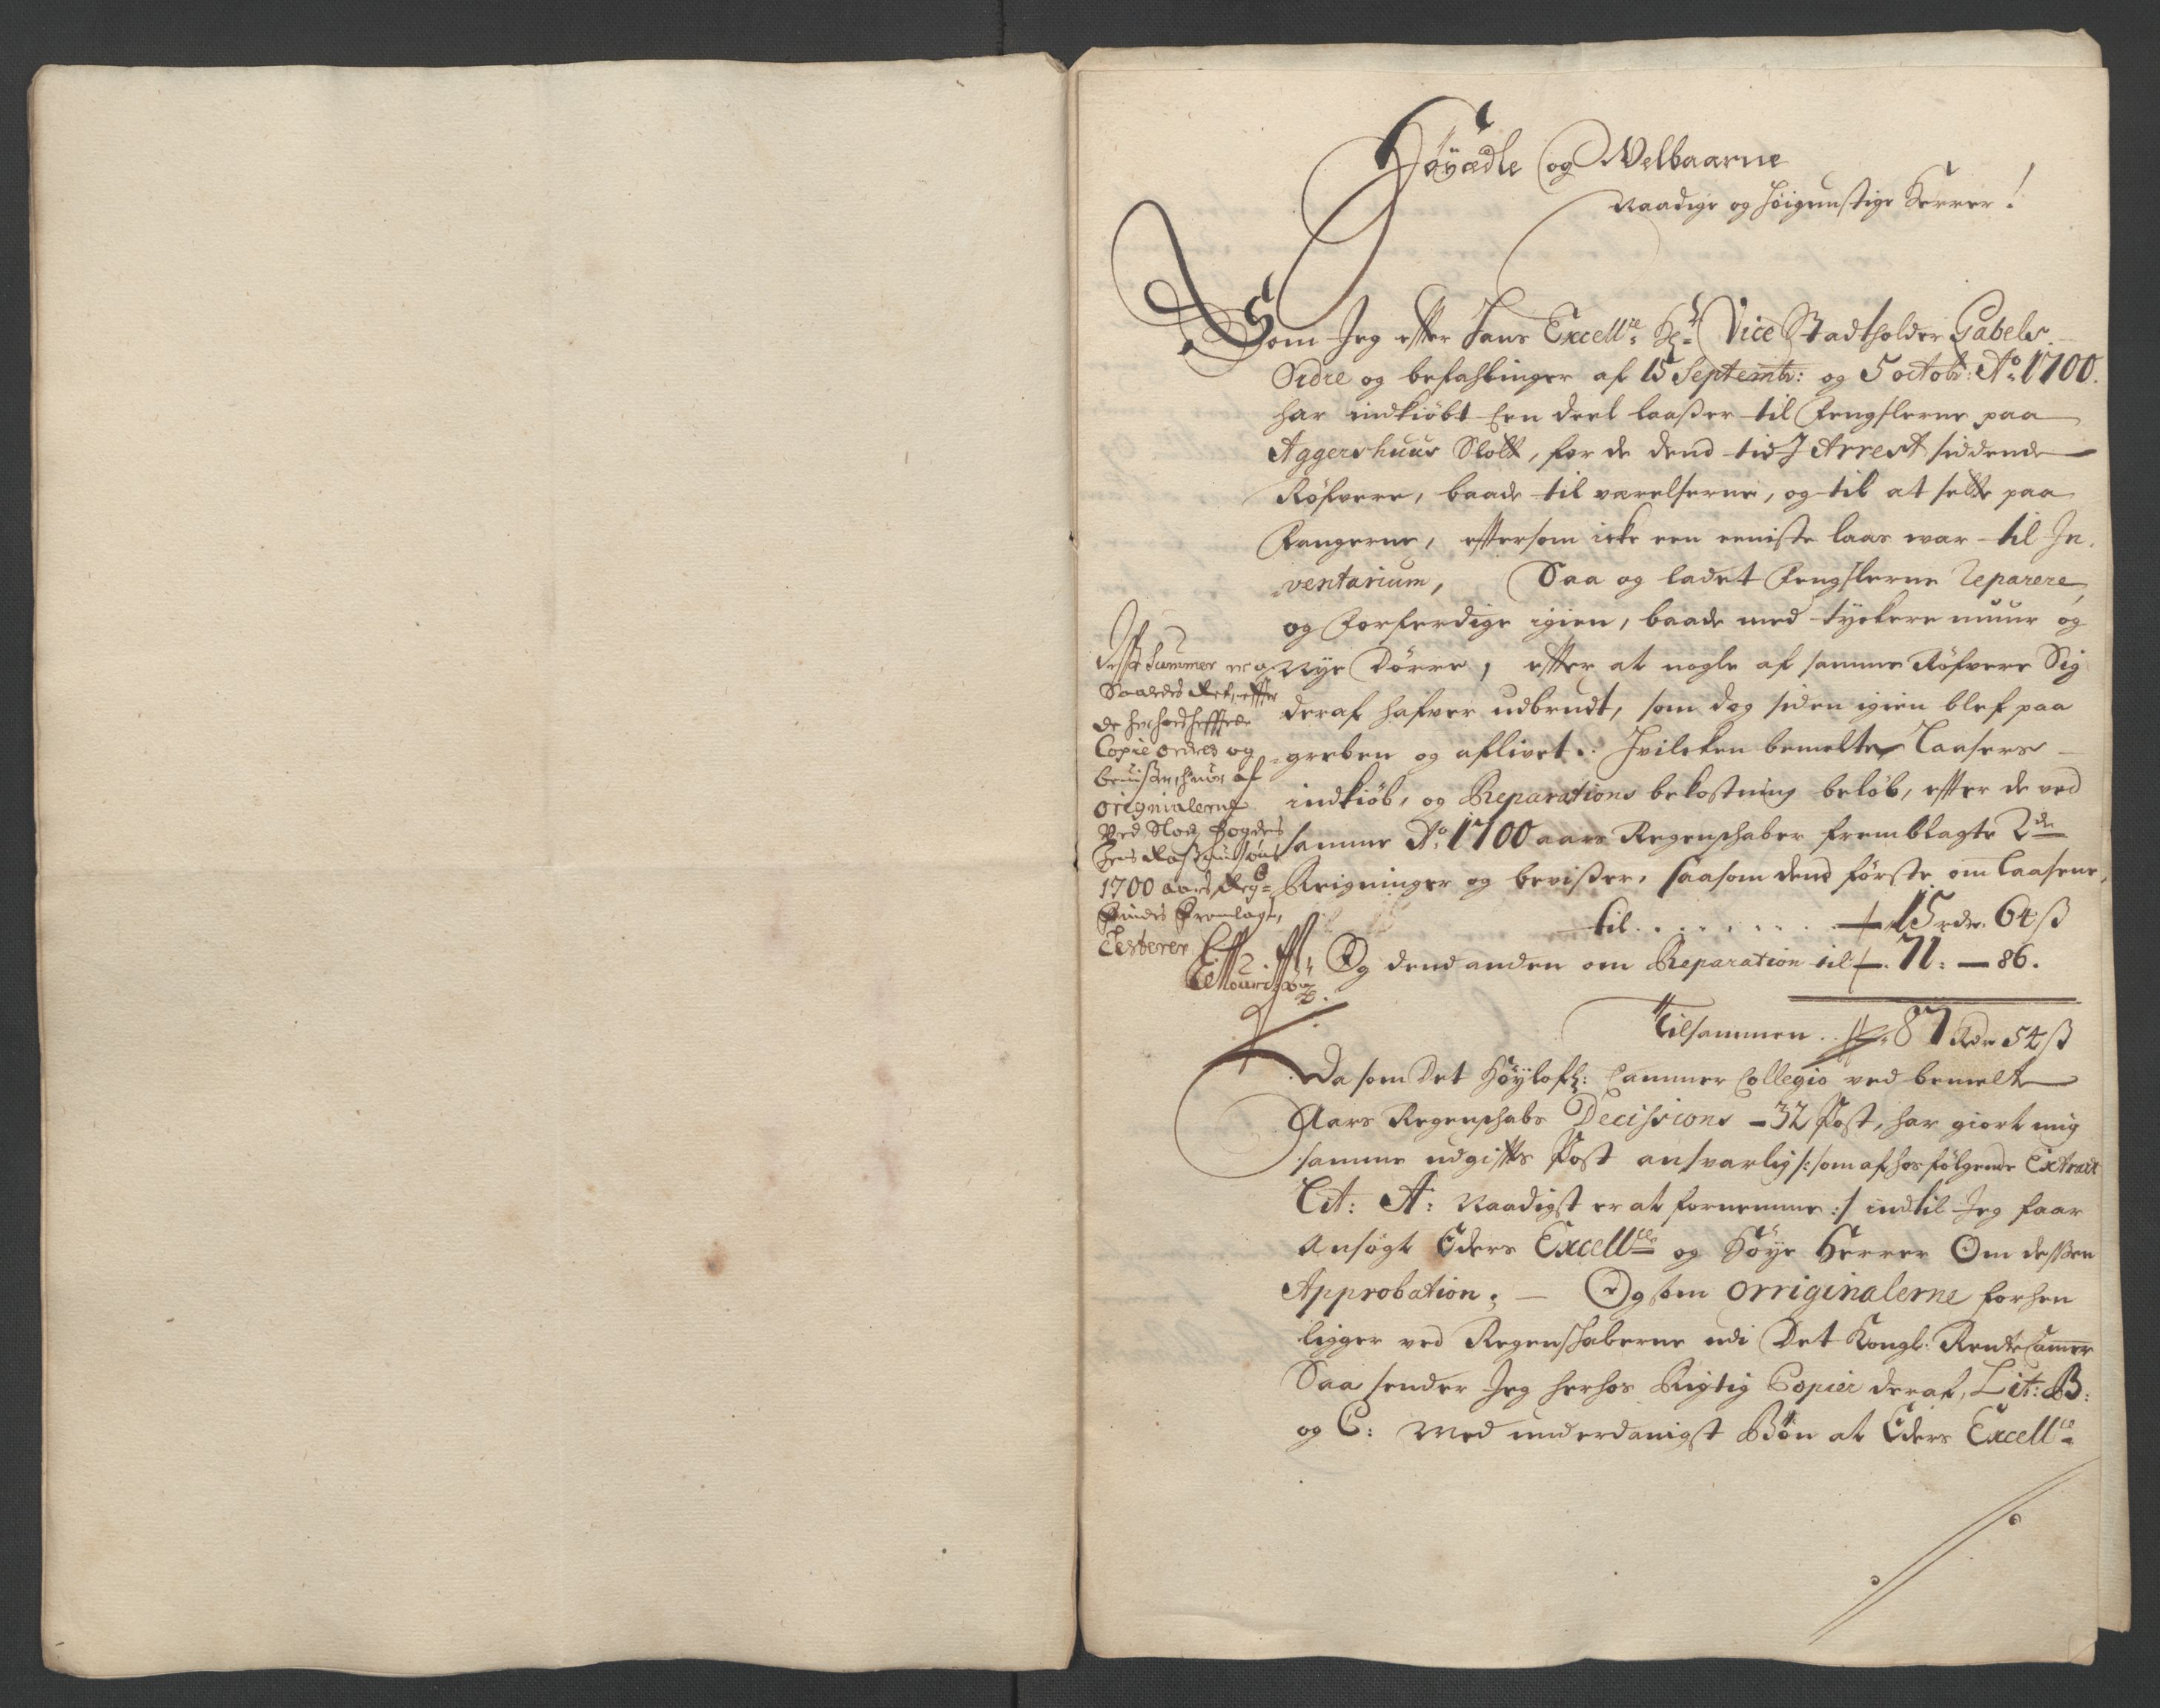 Höyædle og Welbaarne
Naadige og höigunstige Herrer!
Som Jeg effter Hans Excellce: Hr: Vice Stadtholder Gabels
Ordre og befahlinger af 15 Septembr: og 5 octobr: Ao: 1700.
har indkiöbt Een deel laaßer til Fengslerne paa
Aggershuus Slott, for de dend tid J Arrest siddende
Röfvere, baade til værelserne, og til at sette paa
Fangerne, efftersom icke een eeniste laas war til In-
ventarium, Saa og ladet Fengslerne Reparere,
og Forferdige igien, baade med tyckere muur og
Nye Dörre, effter at nogle af samme Röfvere Sig
deraf hafver udbrudt, som dog siden igien blef paa
greben og aflivet. Hvilcken bemelte Laasers
indkiöb, og Reparations bekostning beløb, effter de ved
samme Ao: 1700 aars Regenschaber fremblagte 2de
Reigninger og bevißer, saasom dend förste om laasene,
til . . . . . . . . 15 rdr. 64 ß
Og dend anden om Reparation til 71: — 86.
Tilsammen . . 87 Rdr 54 ß
Da som Det Höylofl: Cammer Collegio ved bemelte
Aars Regenschabs Decisions 32 Post, har giort mig
samme udgiffts Post ansvarlig /: som af hosfölgende Extract
Lit: A: Naadigst er at fornemme :/ indtil Jeg faar
Ansögt Eders Excellce og Höye Herrer Om deßen
Approbation; — Og som orriginalerne forhen
ligger ved Regenschaberne udi Det Kongl: Rente Cammer
Saa sender Jeg herhos Rigtig Copier deraf, Lit: B:
og C: Med underdanigst Bön at Eders Excellce
Summer er og
Saaledes effter
de her hos heffte
Copie ordres og
beviser, som af
originalerne
Ved Slotz Fogdes
Jens Rasmusöns
1700 aars Reg:
Findes Fremlagt,
Testerer